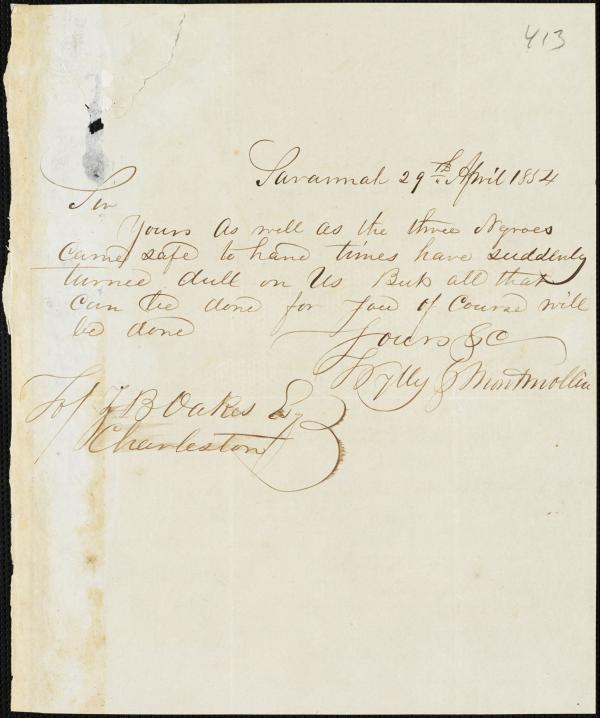 413
Savannah 29th April 1854
Sir
Yours as well as the three Negroes
came safe to hand times have suddenly
turned dull on us But all that
can be done for you of Course will
be done
Yours &C
Wylly & Montmollin
To/ Z B Oakes Esq
Charleston